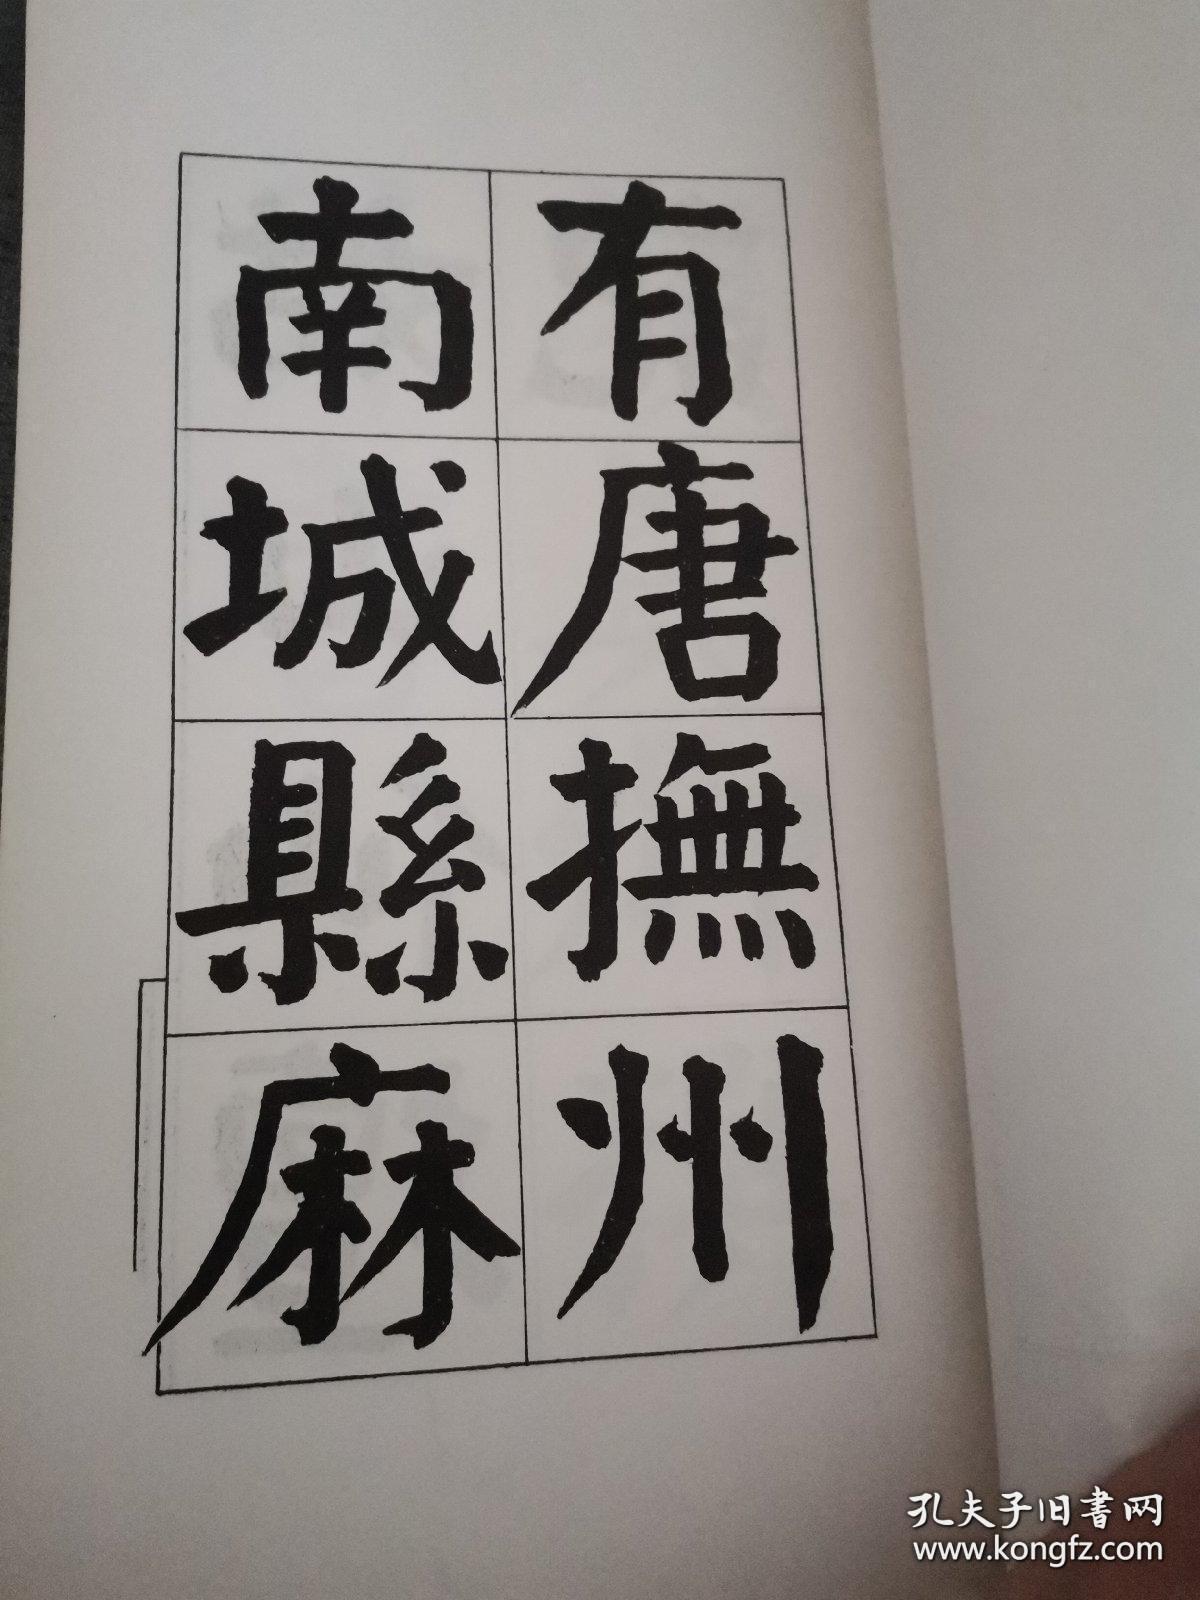 有唐撫州
南城縣麻
孔夫子旧書网
www.kongfz.com